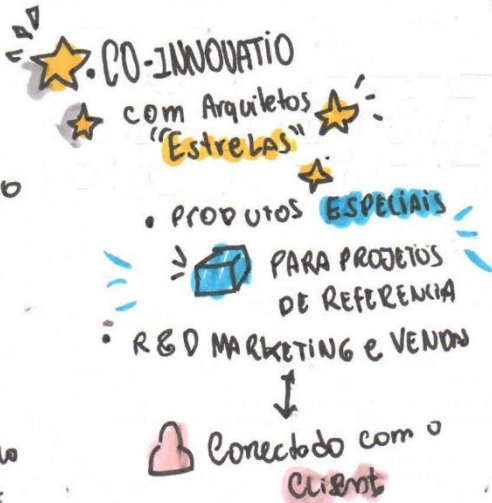 . CO-INNOVATIO
com Arquitetos
"Estrelas"
• PRODUTOS ESPECIAIS
PARA PROJETOS
DE REFERENCIA
• R&D MARKETING e VENDAS
Conectado com o
Client